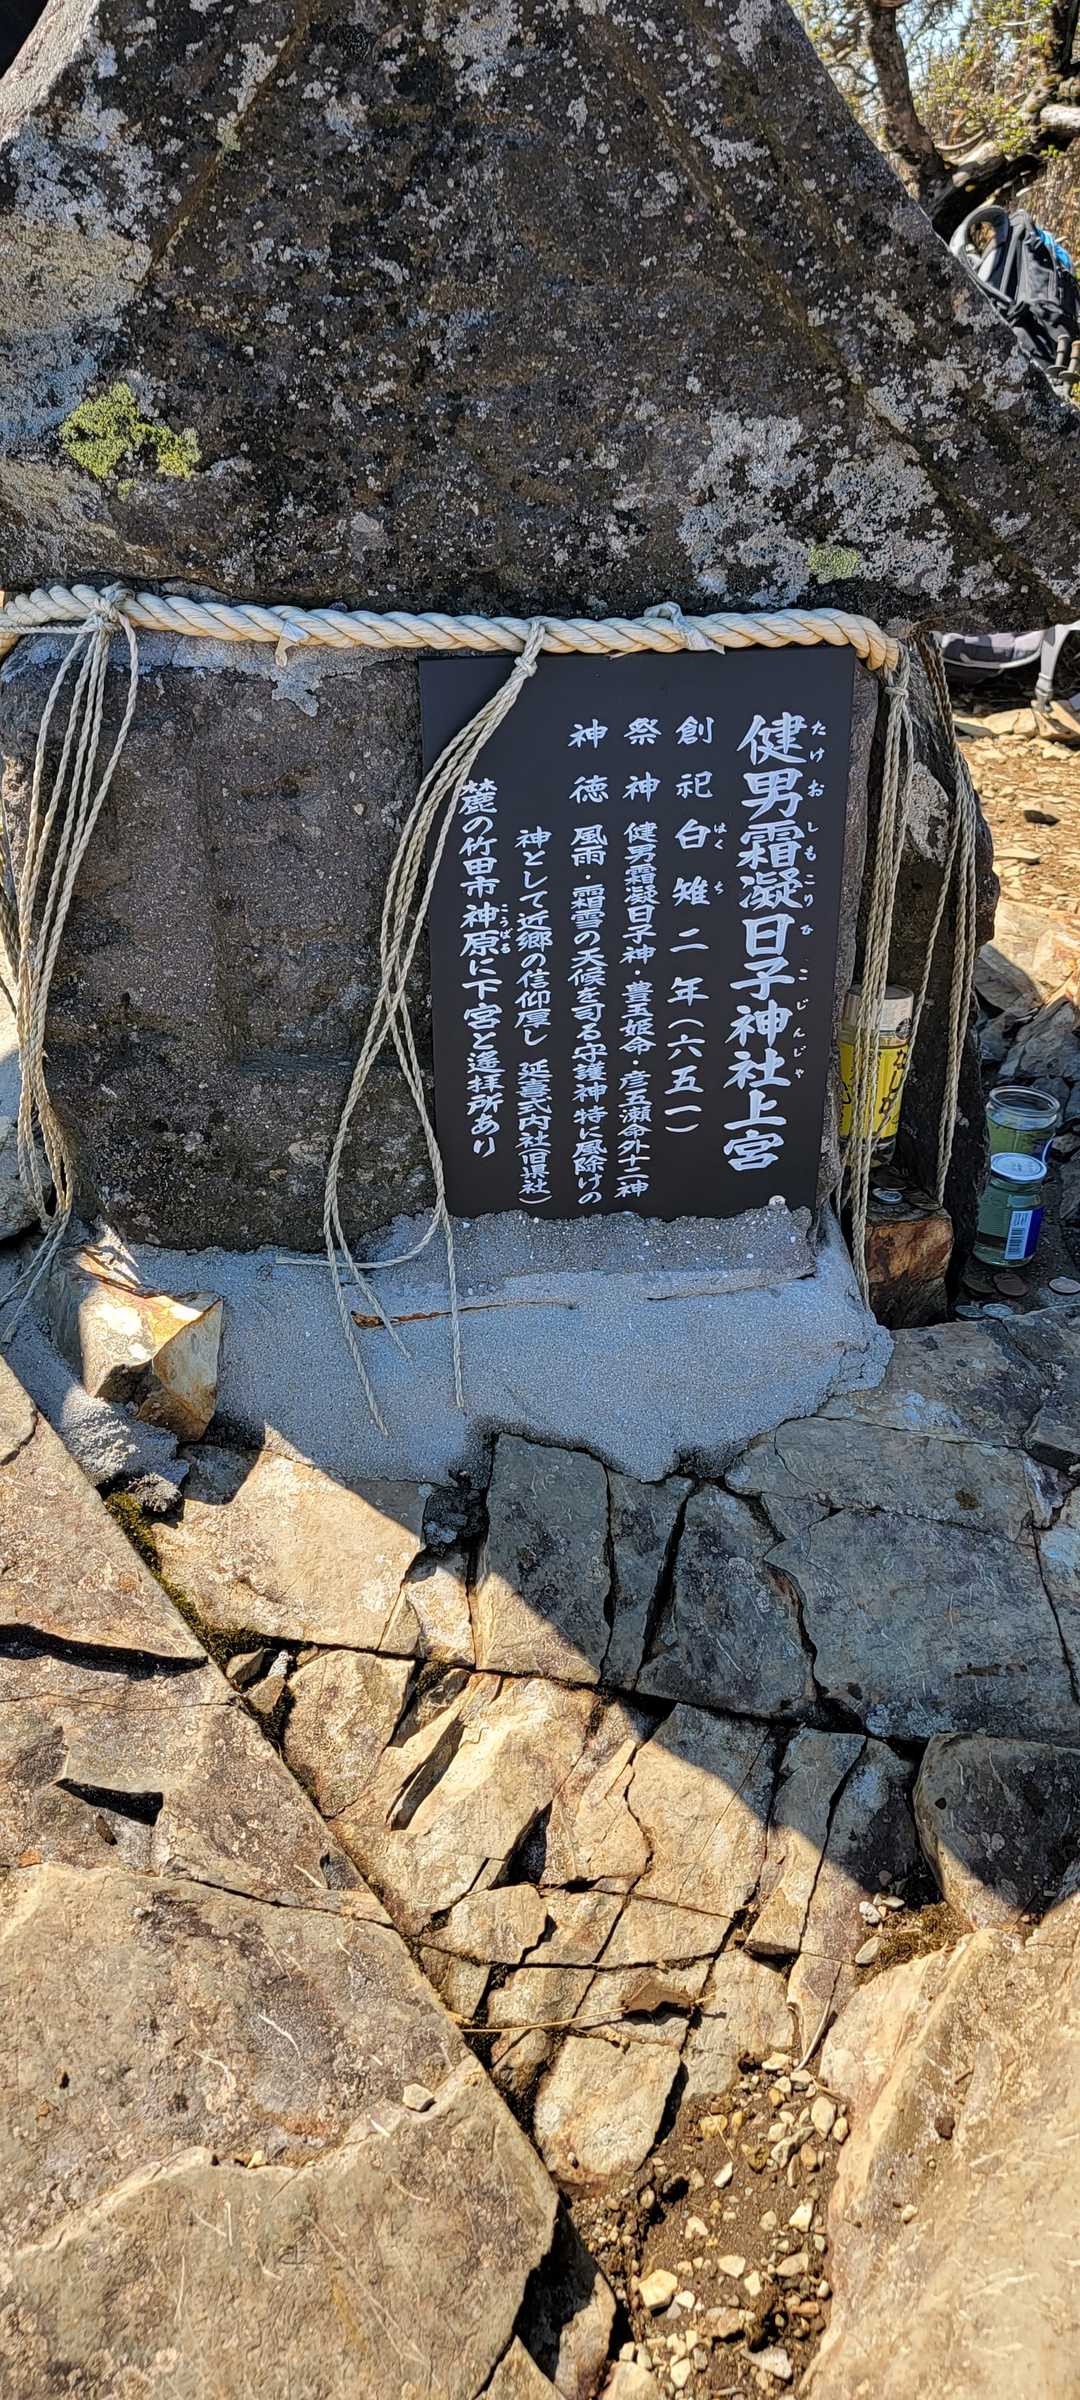 健男霜凝日子神社上宮
たけおしもこりひこじんじゃ
創祀 白雉二年(六五一)
はくち
祭神 健男霜凝日子神・豊玉姫命・彦五瀬命外十二神
神徳 風雨・霜雪の天候を司る守護神特に風除けの
神として近郷の信仰厚し 延喜式内社旧県社)
麓の竹田市神原に下宮と遙拝所あり
こうばる